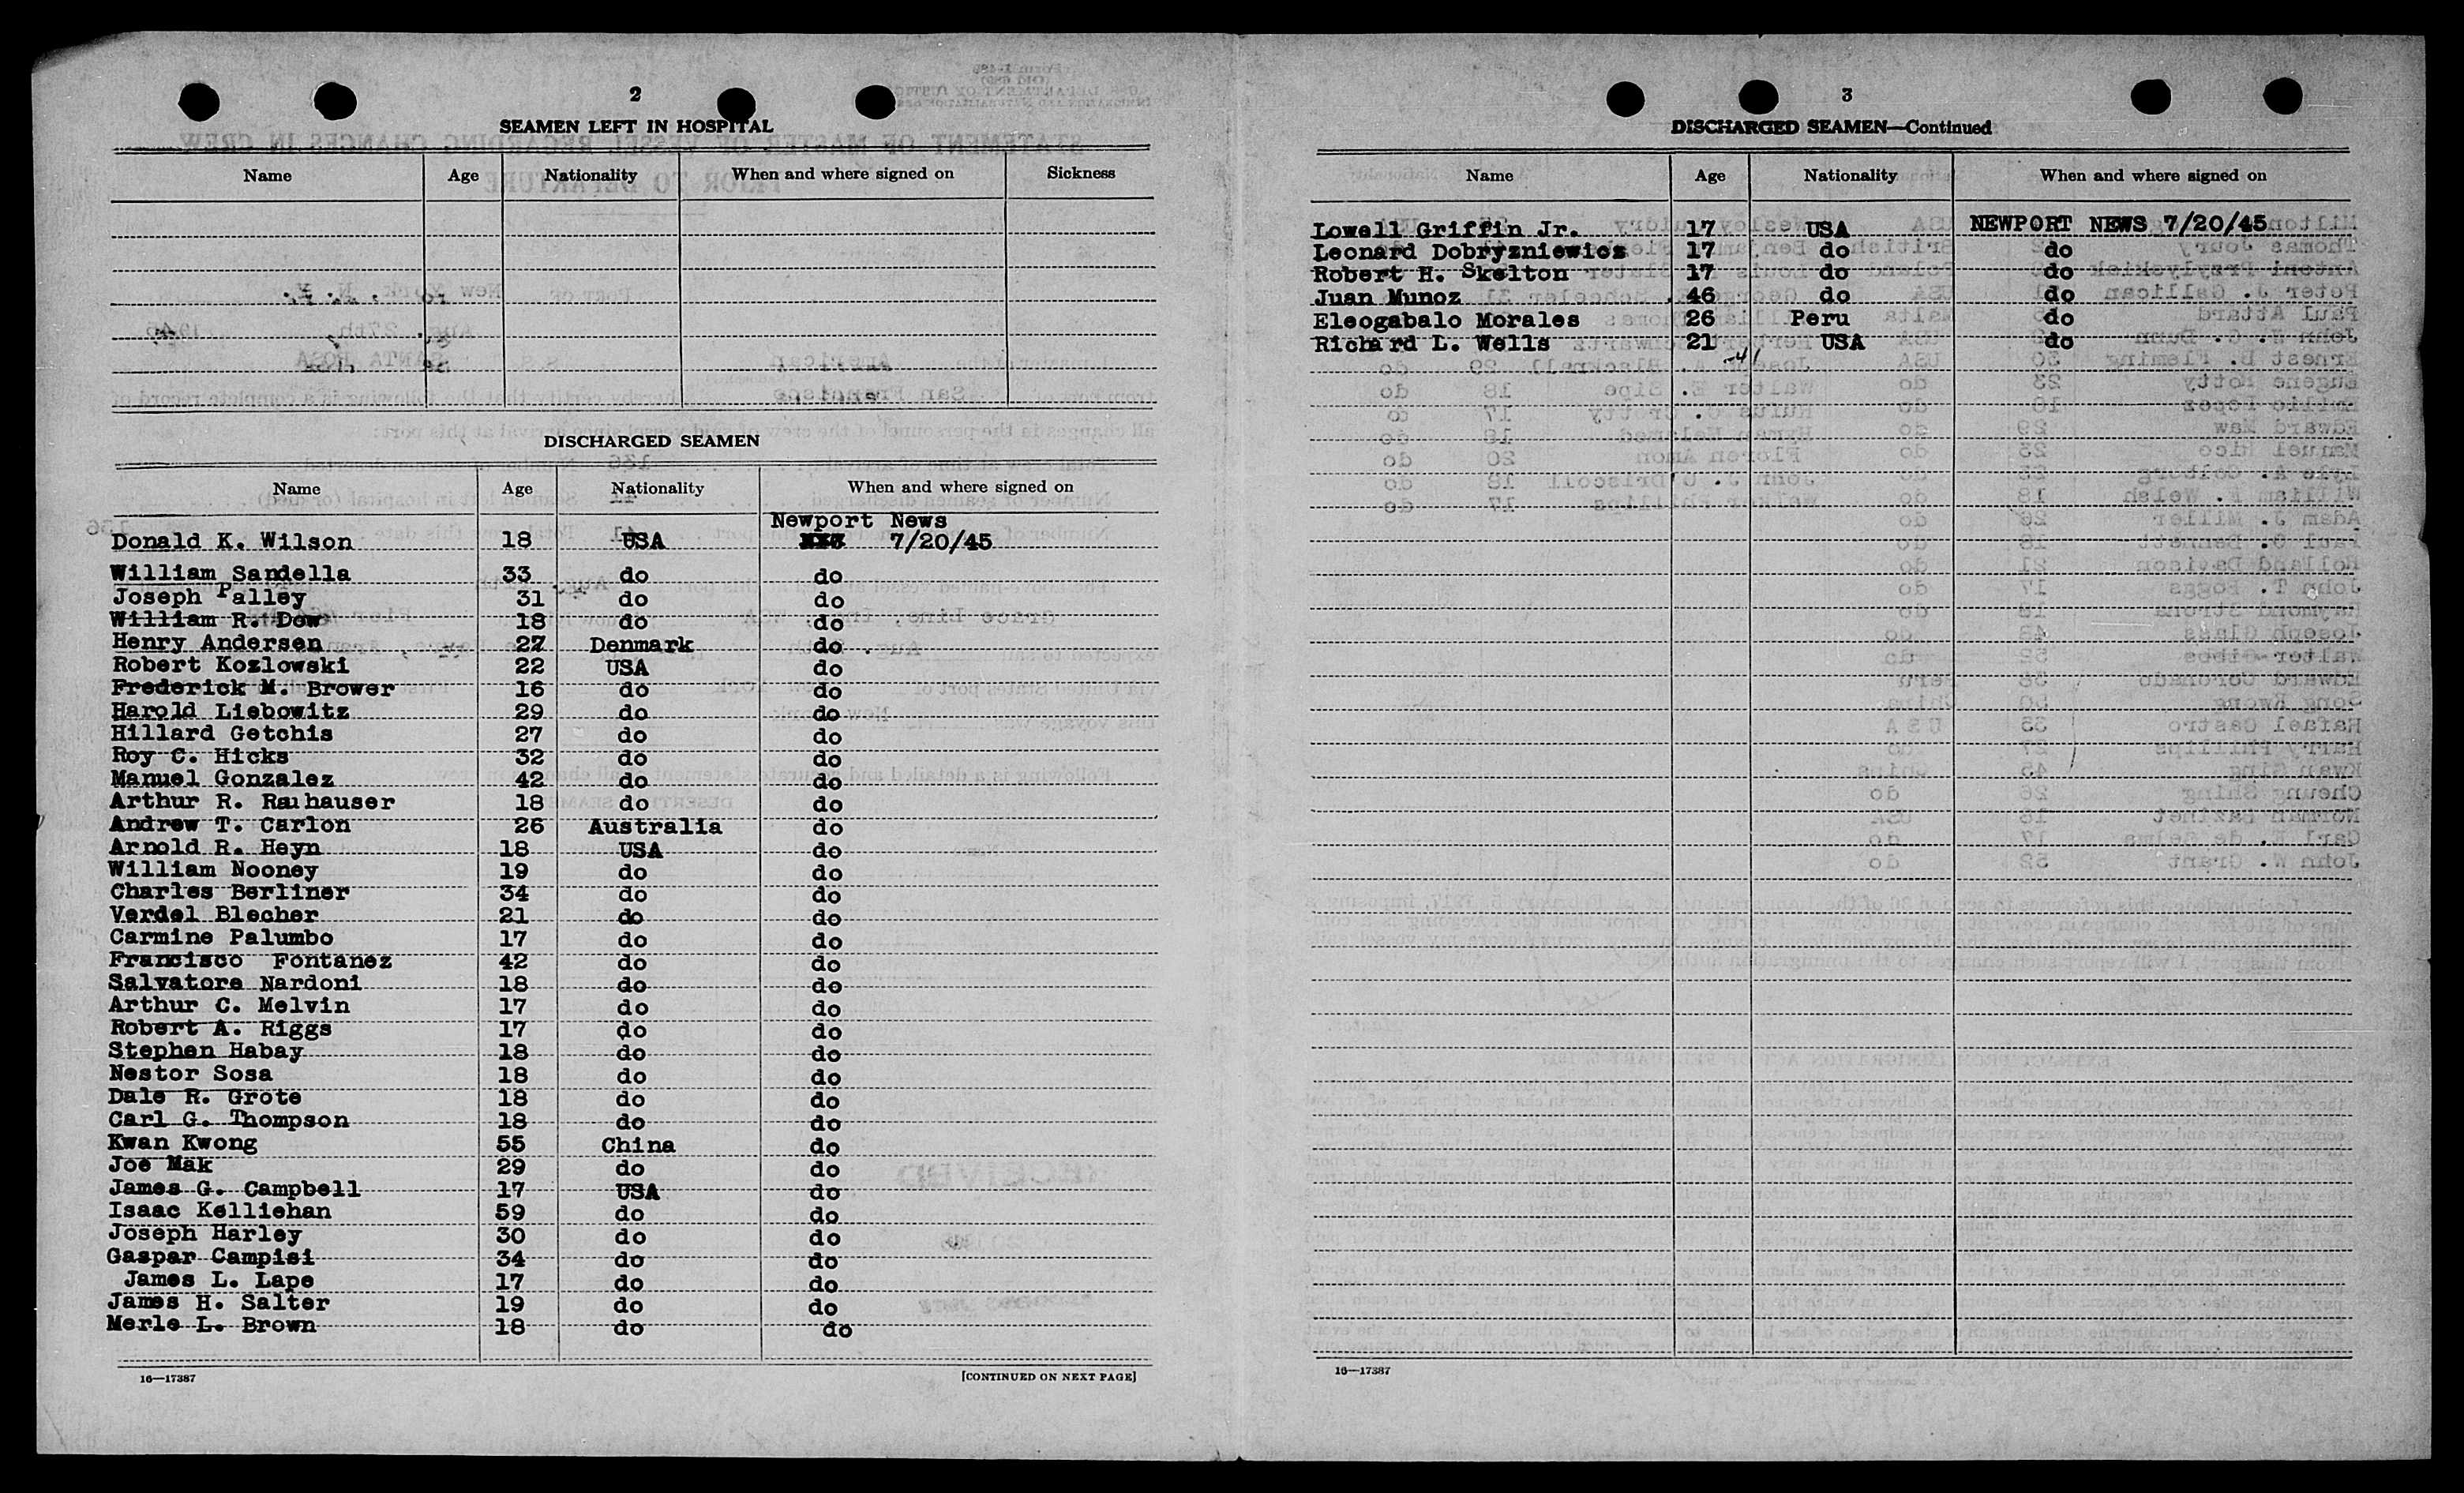 2
SEAMEN LEFT IN HOSPITAL
Name Age Nationality When and where signed on Sickness
DISCHARGED SEAMEN
Name Age Nationality When and where signed on
Newport News
Donald K. Wilson 18 USA 7/20/45
William Sandella 33 do do
Joseph Palley 31 do do
William R. Dow 18 do do
Henry Andersen 27 Denmark do
Robert Kozlowski 22 USA do
Frederick M. Brower 16 do do
Harold Liebowitz 29 do do
Hillard Getchis 27 do do
Roy C. Hicks 32 do do
Manuel Gonzalez 42 do do
Arthur R. Rauhauser 18 do do
Andrew T. Carlon 26 Australia do
Arnold R. Heyn 18 USA do
William Nooney 19 do do
Charles Berliner 34 do do
Verdel Blecher 21 do do
Carmine Palumbo 17 do do
Francisco Fontanez 42 do do
Salvatore Nardoni 18 do do
Arthur C. Melvin 17 do do
Robert A. Riggs 17 do do
Stephen Habay 18 do do
Nestor Sosa 18 do do
Dale R. Grote 18 do do
Carl G. Thompson 18 do do
Kwan Kwong 55 China do
Joe Mak 29 do do
James G. Campbell 17 USA do
Isaac Kelliehan 59 do do
Joseph Harley 30 do do
Gaspar Campisi 34 do do
James L. Lape 17 do do
James H. Salter 19 do do
Merle L. Brown 18 do do
16—17387 [CONTINUED ON NEXT PAGE]
3
DISCHARGED SEAMEN—Continued
Name Age Nationality When and where signed on
Lowell Griffin Jr. 17 USA NEWPORT NEWS 7/20/45
Leonard Dobryzniewics 17 do do
Robert H. Skelton 17 do do
Juan Munoz 46 do do
Eleogabalo Morales 26 Peru do
Richard L. Wells 21 USA do
-41
16—17387